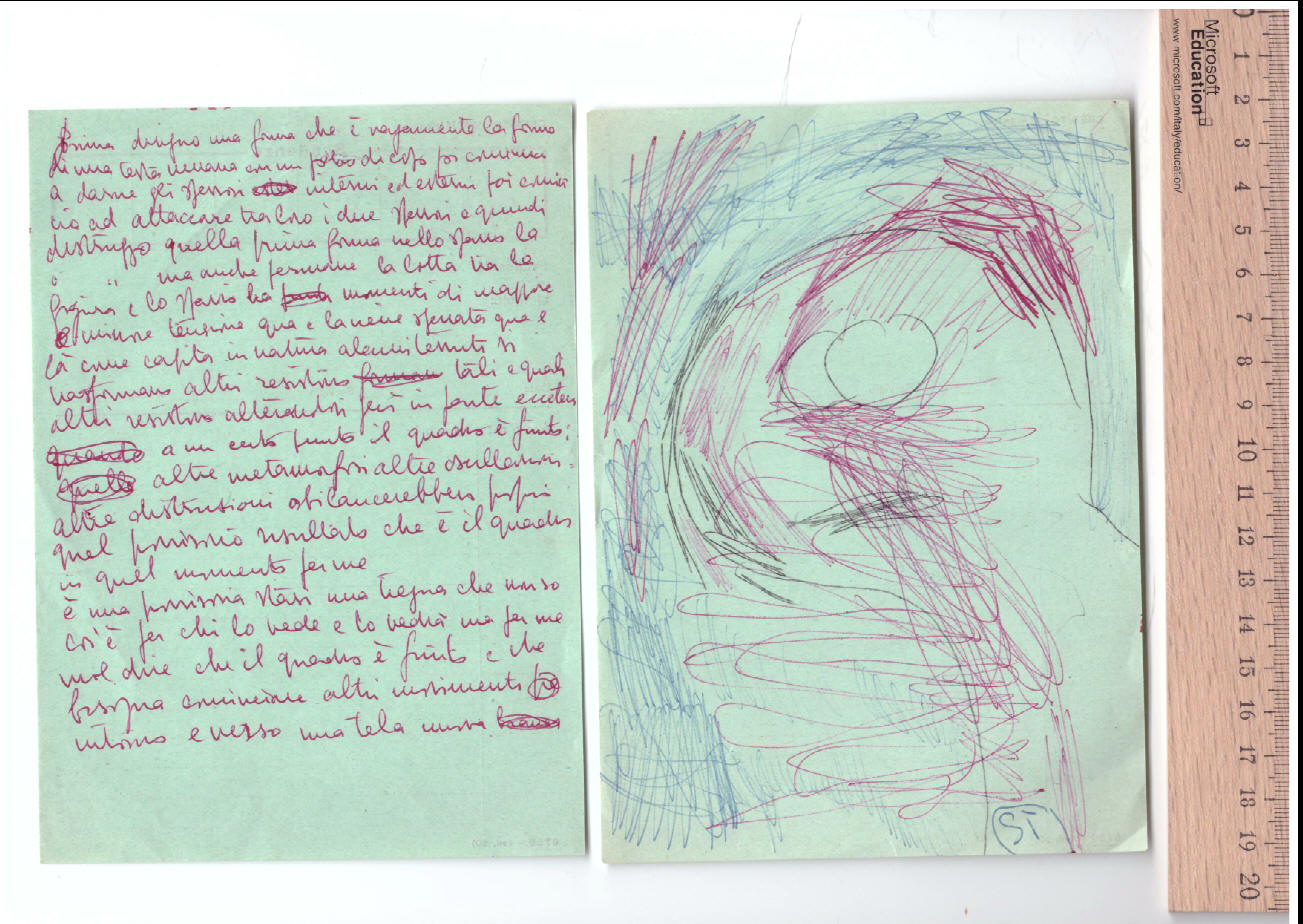 Prima dipingo una forma che è vagamente la forma
di una testa umana con un po' di collo poi comincio
a darne gli spessori interni ed esterni poi comin
cio ad attaccare tra loro i due spessori e quindi
distruggo quella prima forma nello spazio la
o " ma anche permane la lotta tra la
figura e lo spazio ha momenti di maggiore
e minore tensione qua e là viene spenata qua e
là come capita in natura alcuni tessuti si
trasformano altri resistono tali e quali
altri resistono alterandosi però in parte eccetera
a un certo punto il quadro è finito:
altre metamorfosi altre oscillazioni
altre distruzioni sbilancerebbero proprio
quel provvisorio risultato che è il quadro
in quel momento per me
è una provvisoria stasi una tregua che non so
cos'è per chi lo vede e lo vedrà ma per me
vuol dire che il quadro è finito e che
bisogna cominciare altri movimenti
intorno e verso una tela nuova
SÌ
Microsoft
Education
www.microsoft.com/italy/education/
0 1 2 3 4 5 6 7 8 9 10 11 12 13 14 15 16 17 18 19 20